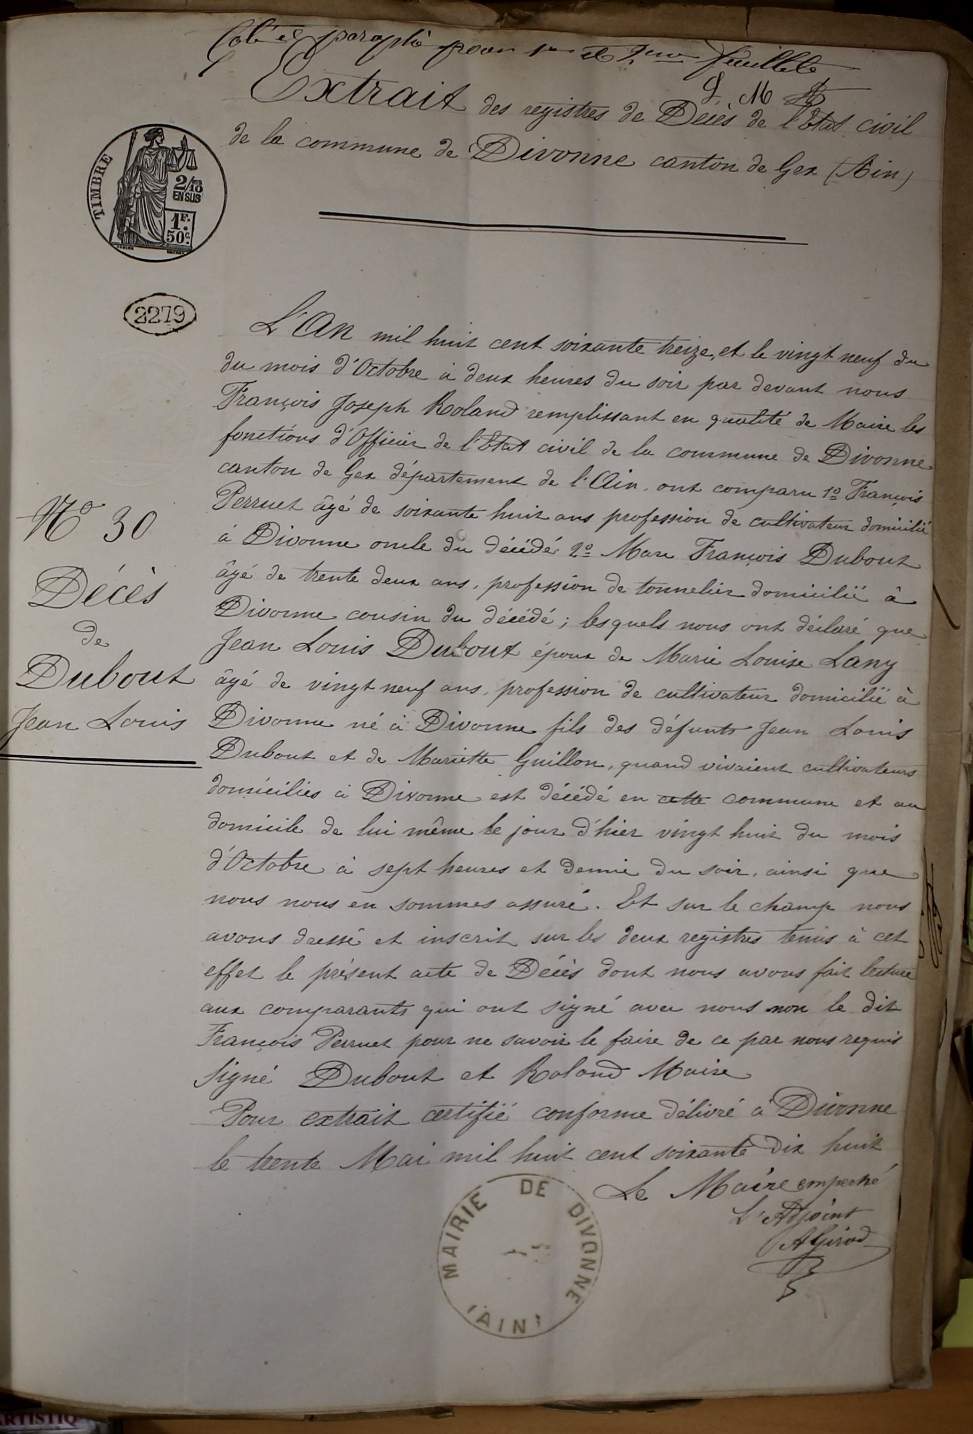 Coté et paraphé pour 1er et 2me feuillets
Extrait des registres de Décès de l'Etat civil
de la commune de Divonne canton de Gex (Ain)
TIMBRE
2/10
EN SUS
1F.
50c.
2279
L'An mil huit cent soixante treize, et le vingt neuf du
du mois d'Octobre à deux heures du soir par devant nous
François Joseph Roland remplissant en qualité de Maire les
fonctions d'Officier de l'Etat civil de la commune de Divonne
canton de Gex département de l'Ain, ont comparu 1º François
Perruet âgé de soixante huit ans profession de cultivateur domicilié
à Divonne oncle du décédé 2º Marc François Dubout
âgé de trente deux ans, profession de tonnelier domicilié à
Divonne cousin du décédé; lesquels nous ont déclaré que
Jean Louis Dubout époux de Marie Louise Lany
âgé de vingt neuf ans, profession de cultivateur domicilié à
Divonne né à Divonne fils des défunts Jean Louis
Dubout et de Mariette Guillon, quand vivaient cultivateurs
domiciliés à Divonne est décédé en cette commune et au
domicile de lui même le jour d'hier vingt huit du mois
d'Octobre à sept heures et demie du soir, ainsi que
nous nous en sommes assuré. Et sur le champ nous
avons dressé et inscrit sur les deux registres tenus à cet
effet le présent acte de Décès dont nous avons fait lecture
aux comparants qui ont signé avec nous non le dit
François Perruet pour ne savoir le faire de ce par nous requis
Signé Dubout et Roland Maire
Pour extrait certifié conforme délivré à Divonne
le trente Mai mil huit cent soixante dix huit
Le Maire empêché
L'Adjoint
AGirod
Nº 30
Décès
de
Dubout
Jean Louis
MAIRIE DE DIVONNE
(AIN)
ARTISTIQ